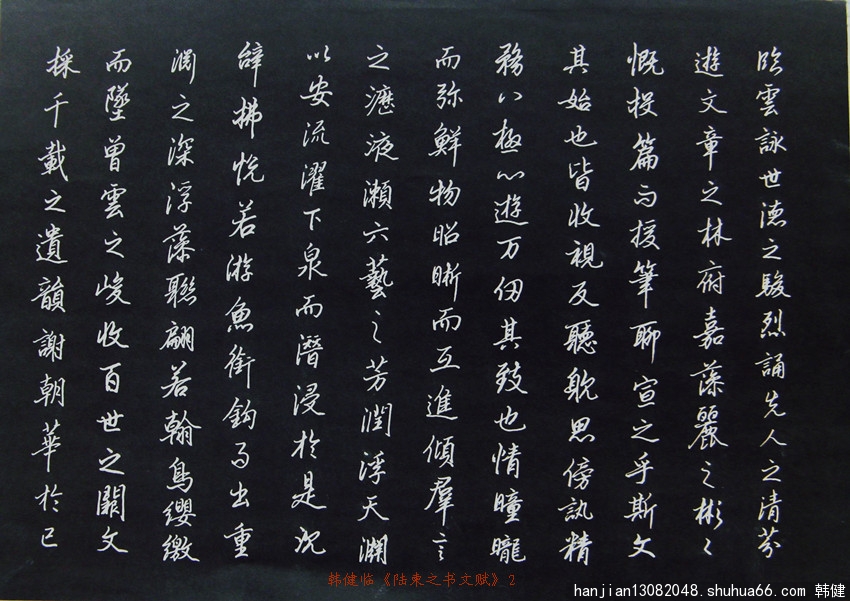 臨雲詠世德之駿烈誦先人之清芬
遊文章之林府嘉藻麗之彬々
慨投篇而援筆聊宣之乎斯文
其始也皆收視反聽躭思傍訊精
務八極心遊万仞其致也情曈曨
而弥鮮物昭晣而互進傾羣言
之瀝液漱六藝之芳潤浮天淵
以安流濯下泉而潛浸於是沉
辞拂悦若游魚銜鈎而出重
淵之深浮藻聯翩若翰鳥纓繳
而墜曾雲之峻收百世之闕文
採千載之遺韻謝朝華於已
韩健临《陆柬之书文赋》2
hanjian13082048.shuhua66.com 韩健